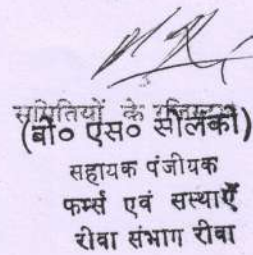 समितियों के
(बी० एस० सोलंकी)
सहायक पंजीयक
फर्म्स एवं सस्थाऐं
रीवा संभाग रीवा